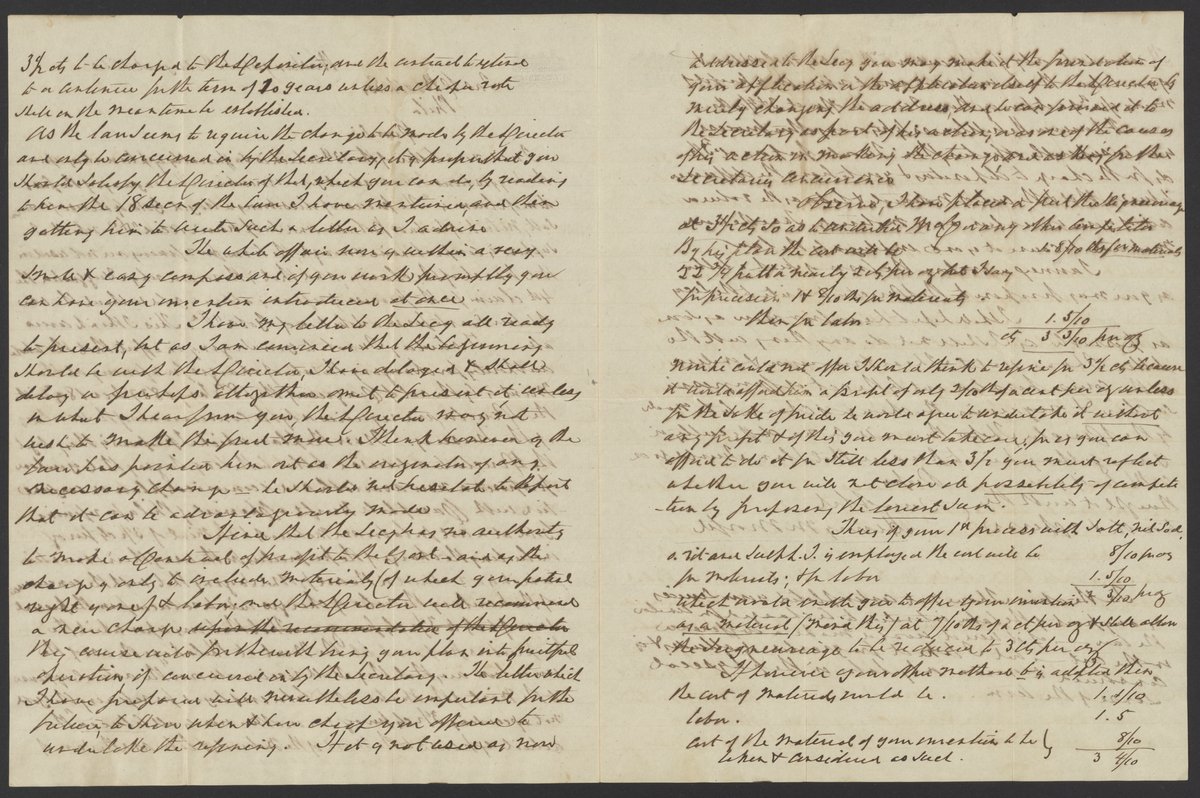 3½ cts to be charged to the Depositor, and the contract to extend
to or continue for the term of 20 years unless a cheaper rate
shall in the meantime be established.
As the law seems to require the change to be made by the Director
and only to be concurred in by the Secretary, it is proper that you
should satisfy the Director of that, which you can do, by reading
to him the 18 secn of the law I have mentioned, and then
getting him to write such a letter as I advise.
The whole affair now is within a very
small & easy compass and if you work promptly you
can have your invention introduced at once.
I have my letter to the Secy all ready
to present, but as I am convinced that the beginning
should be with the Director, I have delayed & shall
delay or perhaps altogether omit to present it unless
in what I hear from you the Director may not
wish to make the first move. I think however as the
law has pointed him out as the originator of any
necessary change he should not hesitate to report
that it can be advantageously made.
Hence that the Secy has no authority
to make a Contract of profit to the Govt and as the
charge is only to include materials (of which your patent
right is one) & labor, and the Director will recommend
a new charge upon the recommendation of the Director
this course will forthwith bring your plan into fruitful
operation if concurred in by the Secretary. The letter which
I have prepared will nevertheless be important for the
future to show when & how cheap you offered to
undertake the refining. If it is not used as now
addressed to the Secy you may make it the foundation of
your application or the application itself to the Director by
merely changing the address, and he can forward it to
the Secretary as part of his action, or as one of the causes
of his action in making the change and asking for the
Secretarys concurrence
Observe, I have placed as part the Seigneurage
at 3½ cts so as to undertake Mr or any other competitor
By his plan the cost will be 1. 8/10 ths for materials
put a nearly 2 cts per oz but I say
for precision 1 & 8/10 ths for materials
then for labor 1. 5/10
cts 3 3/10 per oz
now he could not offer I should think to refine for 3½ cts because
it would afford him a profit of only 2/10 ths of a cent per oz unless
for the sake of pride he would agree to undertake it without
any profit & of this you must take care, for as you can
afford to do it for still less than 3½ you must reflect
whether you will not close all possibility of competi
-tion by proposing the lowest sum.
Thus if your 1st process with Salt, nit Sod,
is employed the cost will be 8/10 pr oz
for materials; & for labor 1. 5/10
2 3/10 pr oz
which would enable you to offer your invention
as a material (mind this) at 7/10 ths of a ct per oz & still allow
the Seigneurage to be reduced to 3 cts per oz
If however your other method be adopted then
the cost of materials would be. 1. 1/10
labor. 1. 5
cost of the material of your invention to be } 8/10
taken & considered as such. 3 4/10